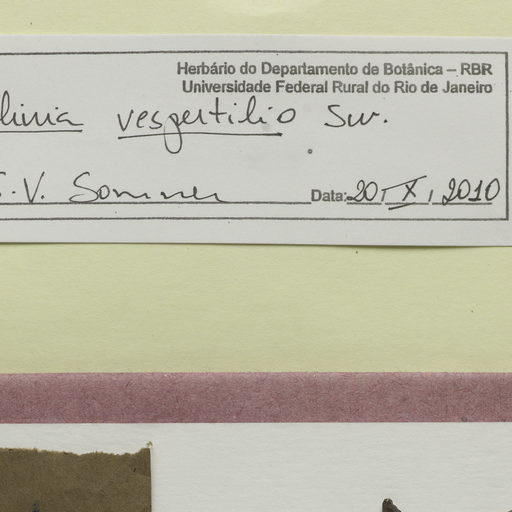 Herbário do Departamento de Botânica – RBR
Universidade Federal Rural do Rio de Janeiro
vespertilio Sw.
V. Sommer Data: 20, X, 2010